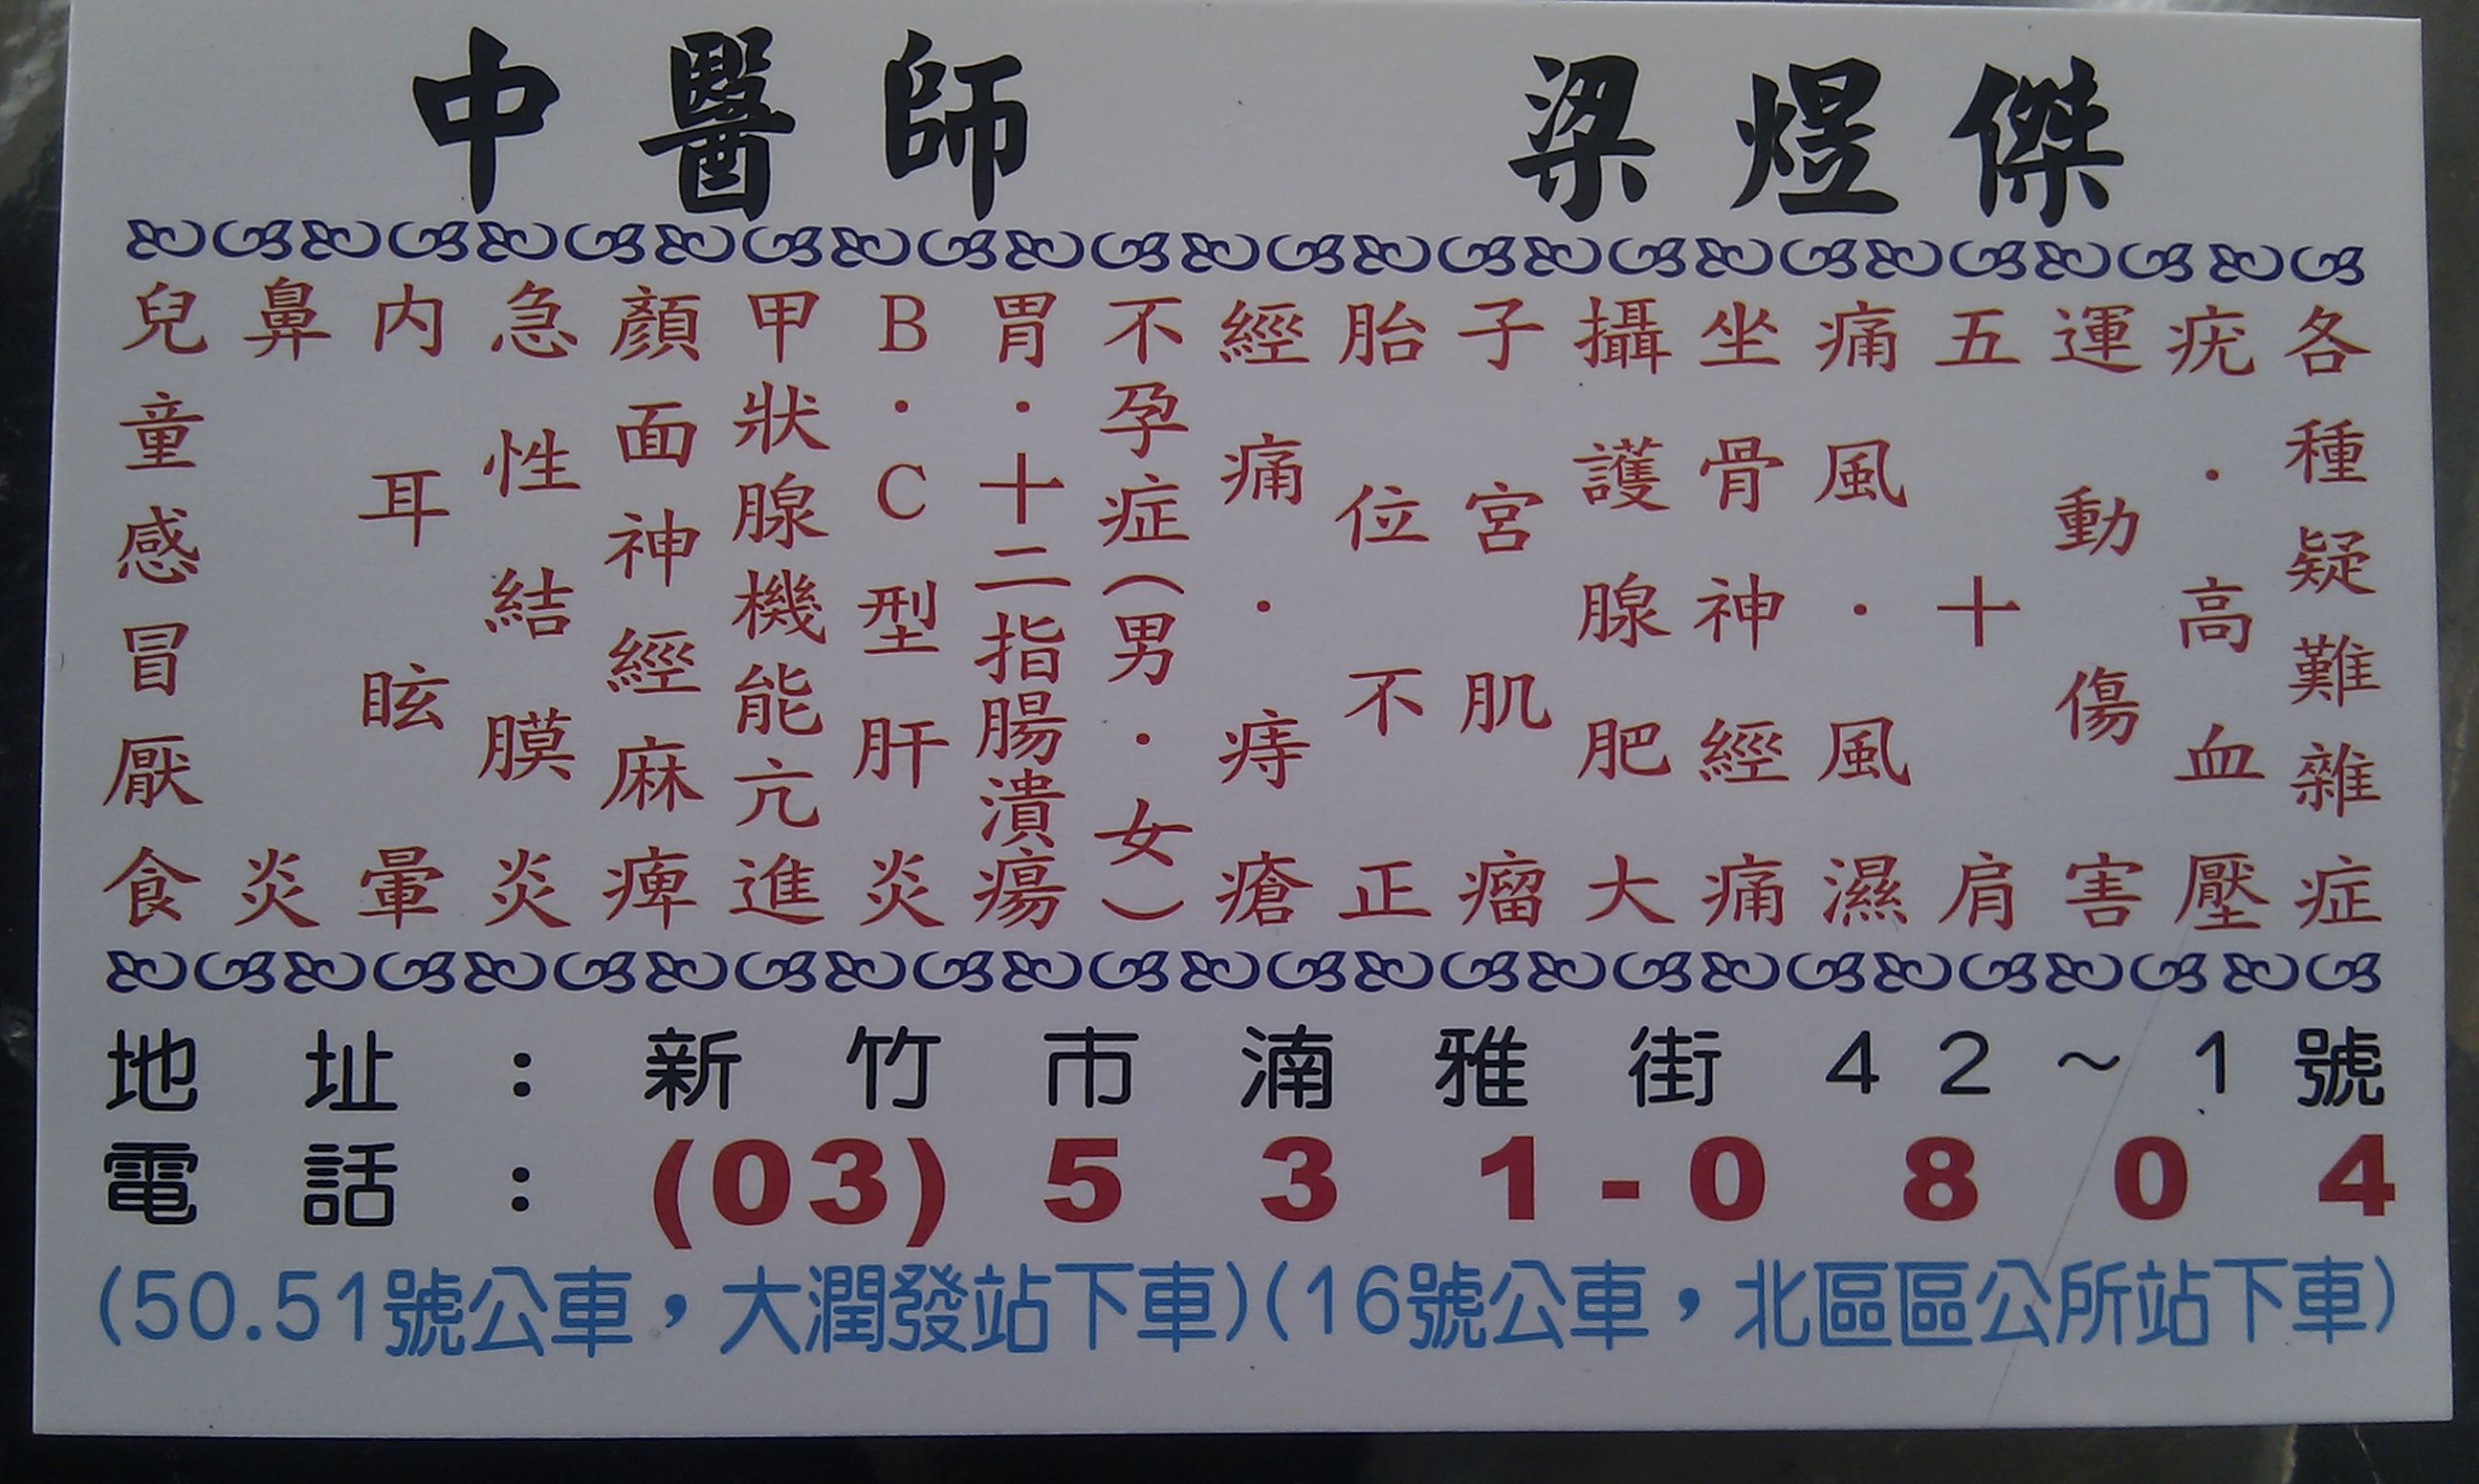 中醫師 梁煜傑
各種疑難雜症
疣．高血壓
運動傷害
五十肩
痛風．風濕
坐骨神經痛
攝護腺肥大
子宮肌瘤
胎位不正
經痛．痔瘡
不孕症(男．女)
胃．十二指腸潰瘍
B．C型肝炎
甲狀腺機能亢進
顏面神經麻痺
急性結膜炎
內耳眩暈
鼻炎
兒童感冒厭食
地址：新竹市湳雅街42～1號
電話：(03)531-0804
(50.51號公車，大潤發站下車)(16號公車，北區區公所站下車)